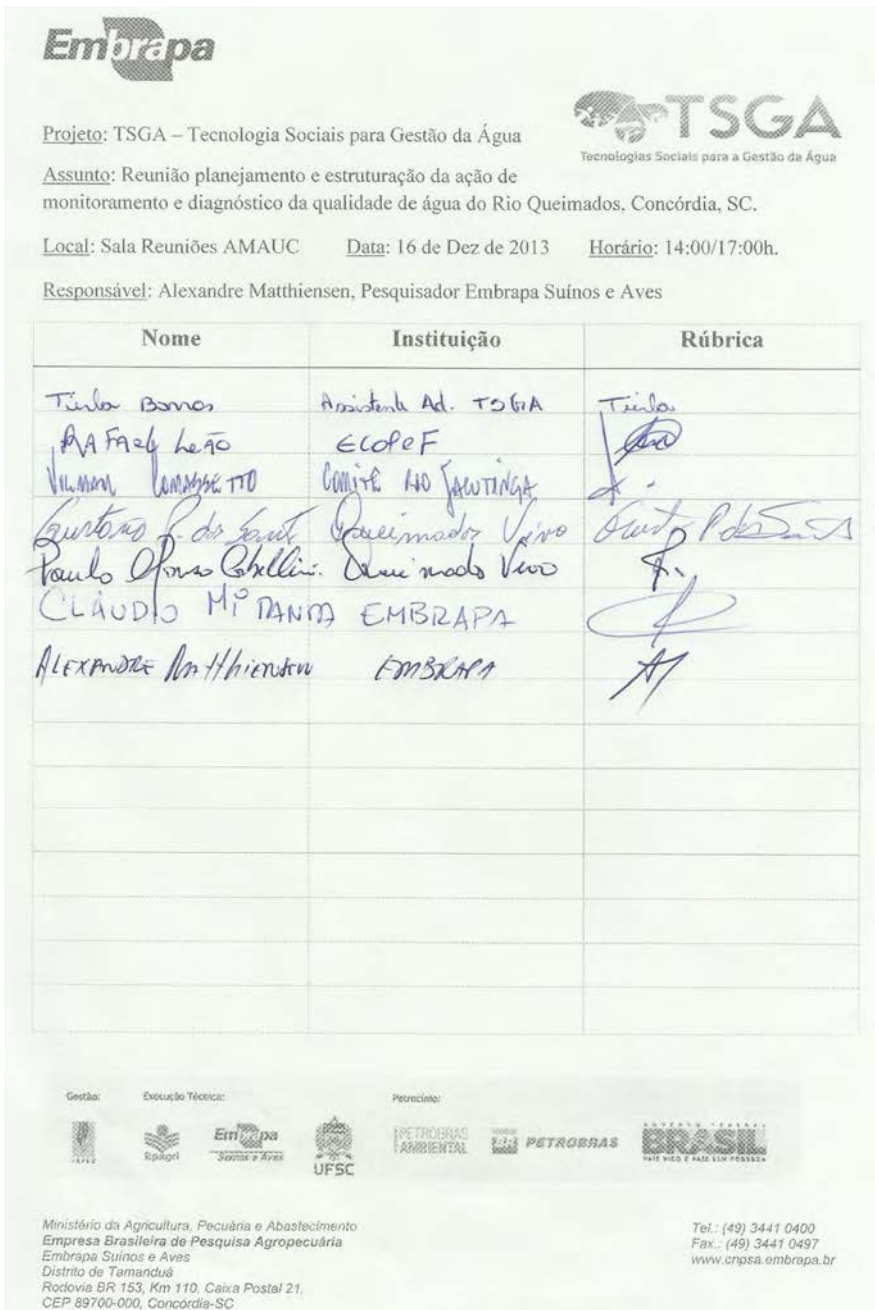 Embrapa
TSGA
Tecnologias Sociais para a Gestão da Água
Projeto: TSGA – Tecnologia Sociais para Gestão da Água
Assunto: Reunião planejamento e estruturação da ação de
monitoramento e diagnóstico da qualidade de água do Rio Queimados, Concórdia, SC.
Local: Sala Reuniões AMAUC Data: 16 de Dez de 2013 Horário: 14:00/17:00h.
Responsável: Alexandre Matthiensen, Pesquisador Embrapa Suínos e Aves
Nome Instituição Rúbrica
Barros Assistente Ad. TSGA
RAFAEL LEÃO ECOPEF
COMITÊ RIO JACUTINGA
Gustavo P. dos Sant Queimados Vivo
Paulo Queimado Vivo
CLÁUDIO MIRANDA EMBRAPA
ALEXANDRE Matthiensen EMBRAPA
Gestão: Execução Técnica: Patrocínio:
Epagri
Embrapa
Suínos e Aves
UFSC
PETROBRAS
AMBIENTAL
BR PETROBRAS
GOVERNO FEDERAL
BRASIL
PAÍS RICO É PAÍS SEM POBREZA
Ministério da Agricultura, Pecuária e Abastecimento
Empresa Brasileira de Pesquisa Agropecuária
Embrapa Suínos e Aves
Distrito de Tamanduá
Rodovia BR 153, Km 110, Caixa Postal 21,
CEP 89700-000, Concórdia-SC
Tel.: (49) 3441 0400
Fax.: (49) 3441 0497
www.cnpsa.embrapa.br